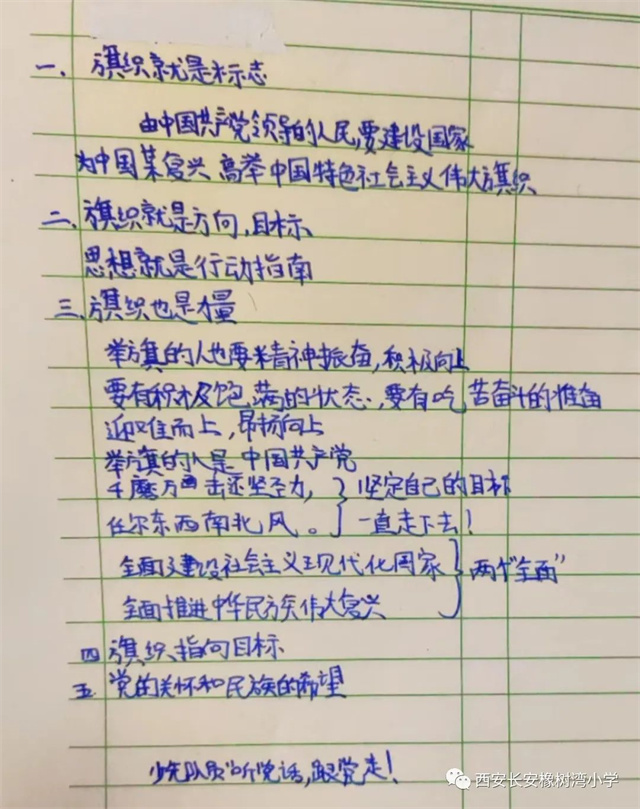 一、旗织就是标志
由中国共产党领导的人民,要建设国家
为中国某复兴 高举中国特色社会主义伟大旗织
二、旗织就是方向,目标、
思想就是行动指南
三、旗织也是量
举旗的人也要精神振奋,积极向上
要有积极饱满的状态,要有吃苦奋斗的准备
迎难而上,昂扬向上
举旗的人是中国共产党
千磨万击还坚力,
任尔东西南北风。
坚定自己的目标
一直走下去!
全面建设社会主义现代化国家
全面推进中华民族伟大复兴
两个"全面"
四 旗织指向目标
五 党的关怀和民族的希望
少先队员听党话,跟党走!
西安长安橡树湾小学